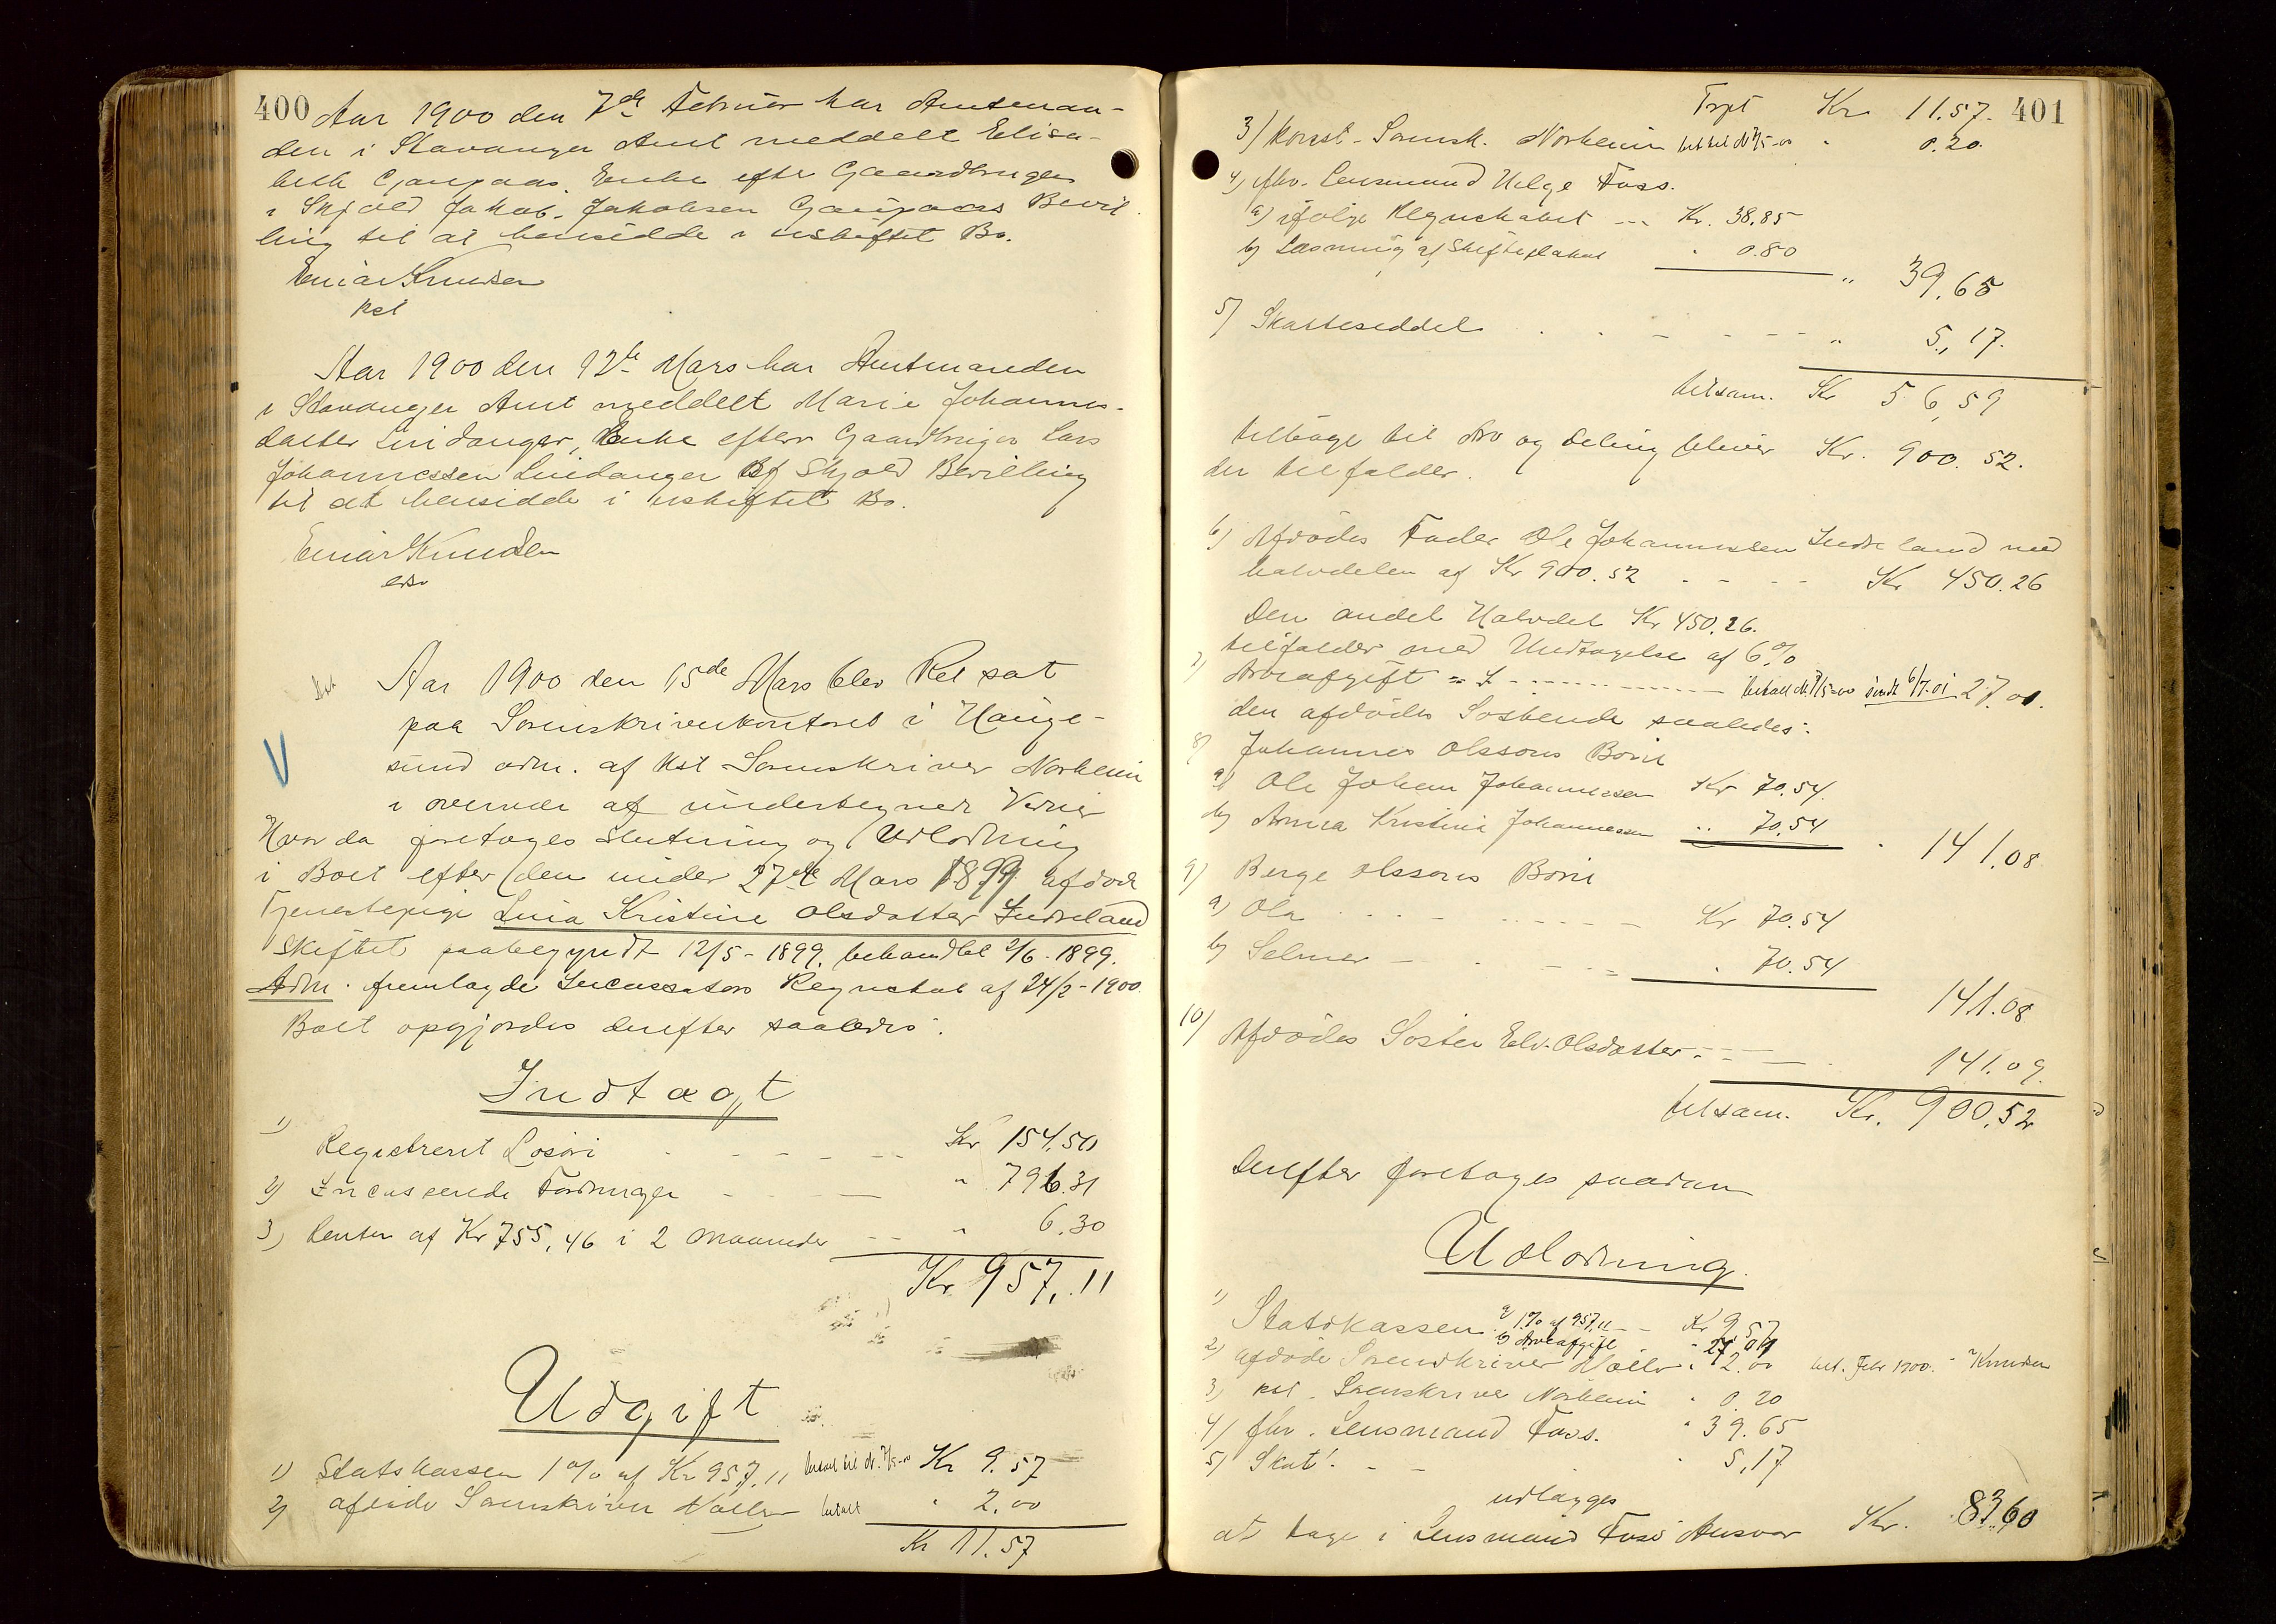 400
Aar 1900 den 7de Februar har Amtman-
den i Stavanger Amt meddelt Elisa-
beth Gjaupaas, Enke efter Gaardbruger
i Skjold Jakob Jakobsen Gaupaas Bevil
ling til at hensidde i uskiftet Bo.
Einar Knudsen
kst
Aar 1900 den 12te Mars har Amtmanden
i Stavanger Amt meddelt Marie Johannes-
datter Lindanger, Enke efter Gaardbruger Lars
Johannessen Lindanger af Skjold Bevilling
til at hensidde i uskiftet Bo.
Einar Knudsen
Aar 1900 den 15de Mars blev Ret sat
paa Sorenskriverkontoret i Hauge-
sund adm. af Kst Sorenskriver Norheim
i overvær af undertegnede Vidner
Hvor da foretoges Slutning og Udlodning
i Boet efter den under 27de Mars 1899 afdøde
Tjenestepige Lina Kristine Olsdatter Indreland
Skiftet paabegyndt 12/5-1899, behandlet 2/6-1899.
Adm. fremlagde Incassators Regnskab af 24/2-1900.
Boet opgjordes derefter saaledes:
Indtægt
1) Registreret Løsøre - - - - - Kr 154,50
2) Incasserede Fordringer - - - " 796.31
3) Renter af Kr 755,46 i 2 Maaneder - - " 6,30
Kr 957,11
Udgift
1) Statskassen 1% af Kr 957,11 Kr 9.57
2) afdøde Sorenskriver Møller betalt " 2.00
Kr 11.57
401
Trpt Kr 11.57.
3) Konst. Sorensk. Norheim " 0.20
4) fhv. Lensmand Helge Foss.
a) ifølge Regnskabet - - - Kr. 38,85
b) Læsning af Skifteplakat " 0.80
" 39,65
5) Skatteseddel - - - - - " 5,17.
tilsam. Kr 56,59
tilbage til Arv og Deling bliver Kr. 900.52.
der tilfalder.
6) Afdødes Fader Ole Johannessen Indreland med
halvdelen af Kr 900.52 - - - - Kr 450.26
Den anden Halvdel Kr 450,26.
tilfalder med Undtagelse af 6%
7) Arveafgift - - - - - - 27.01.
den afdødes Søskende saaledes:
8) Johannes Olssons Børn
a) Ole Johan Johannessen Kr 70.54.
b) Anna Kristine Johannessen " 70,54
" 141,08
9) Berge Olssons Børn
a) Ola - - - - - - - - Kr 70.54
b) Selmer - - - - - " 70.54
141.08
10) Afdødes Søster Elv. Olsdatter - - - 141.09.
tilsam. Kr. 900.52
Derefter foretages saadan
Udlodning.
1) Statskassen a) 1% af 957,11 - - Kr 9,57
b) Arveafgift " 27,01
2) afdøde Sorenskriver Møller " 2.00 bet. Febr 1900. Knudsen
3) kst. Sorenskriver Norheim " 0.20
4) fhv. Lensmand Foss. " 39.65
5) Skat - - " 5,17
udlægges
at tage i Lensmand Foss' Ansvar Kr. 83,60